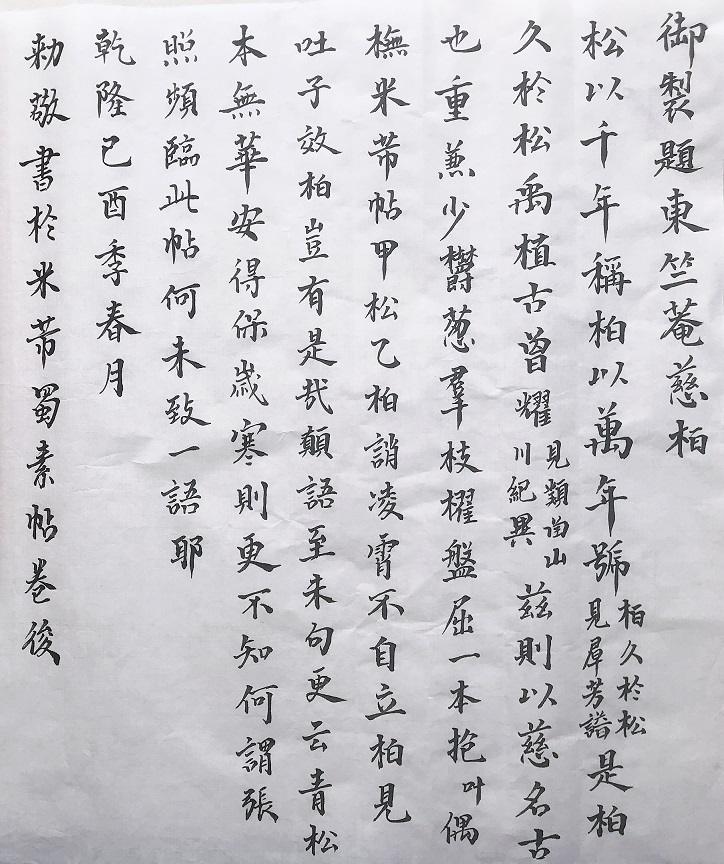 御製題東竺菴慈柏
松以千年稱柏以萬年號柏久於松見羣芳譜是柏
久於松禹植古曾耀見類函山川紀異茲則以慈名古
也重兼少欝葱羣枝櫂盤屈一本抱叶偶
橅米芾帖甲松乙柏誚凌霄不自立柏見
吐子效柏豈有是哉顛語至末句更云青松
本無華安得保歲寒則更不知何謂張
照頻臨此帖何未致一語耶
乾隆已酉季春月
勅敬書於米芾蜀素帖卷後